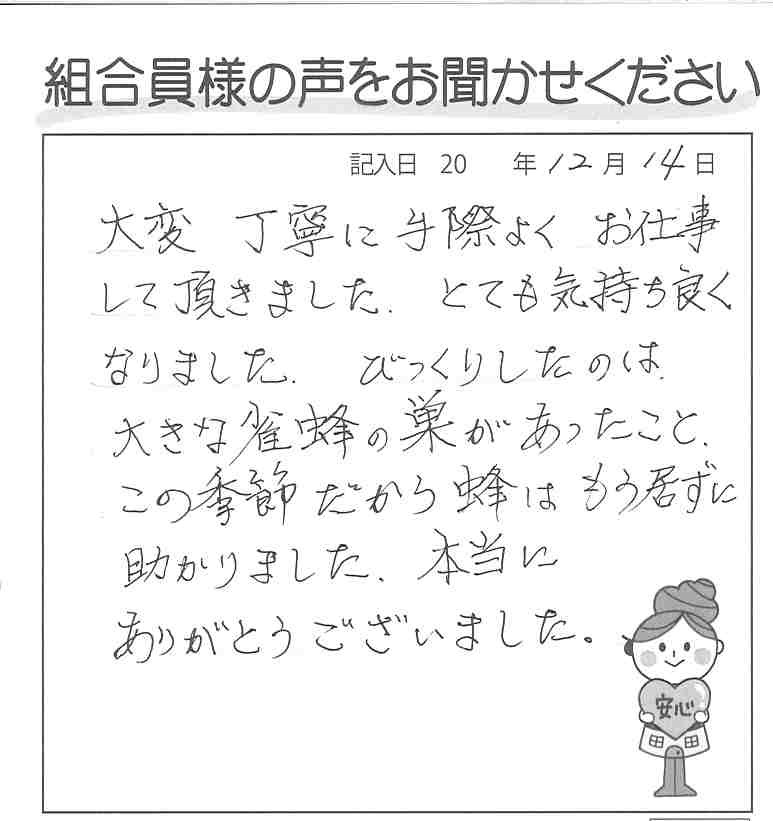 組合員様の声をお聞かせください
記入日 20 年12月14日
大変 丁寧に手際よく お仕事
して頂きました. とても気持ち良く
なりました. びっくりしたのは
大きな雀蜂の巣があったこと.
この季節だから蜂はもう居ずに
助かりました. 本当に
ありがとうございました。
安心